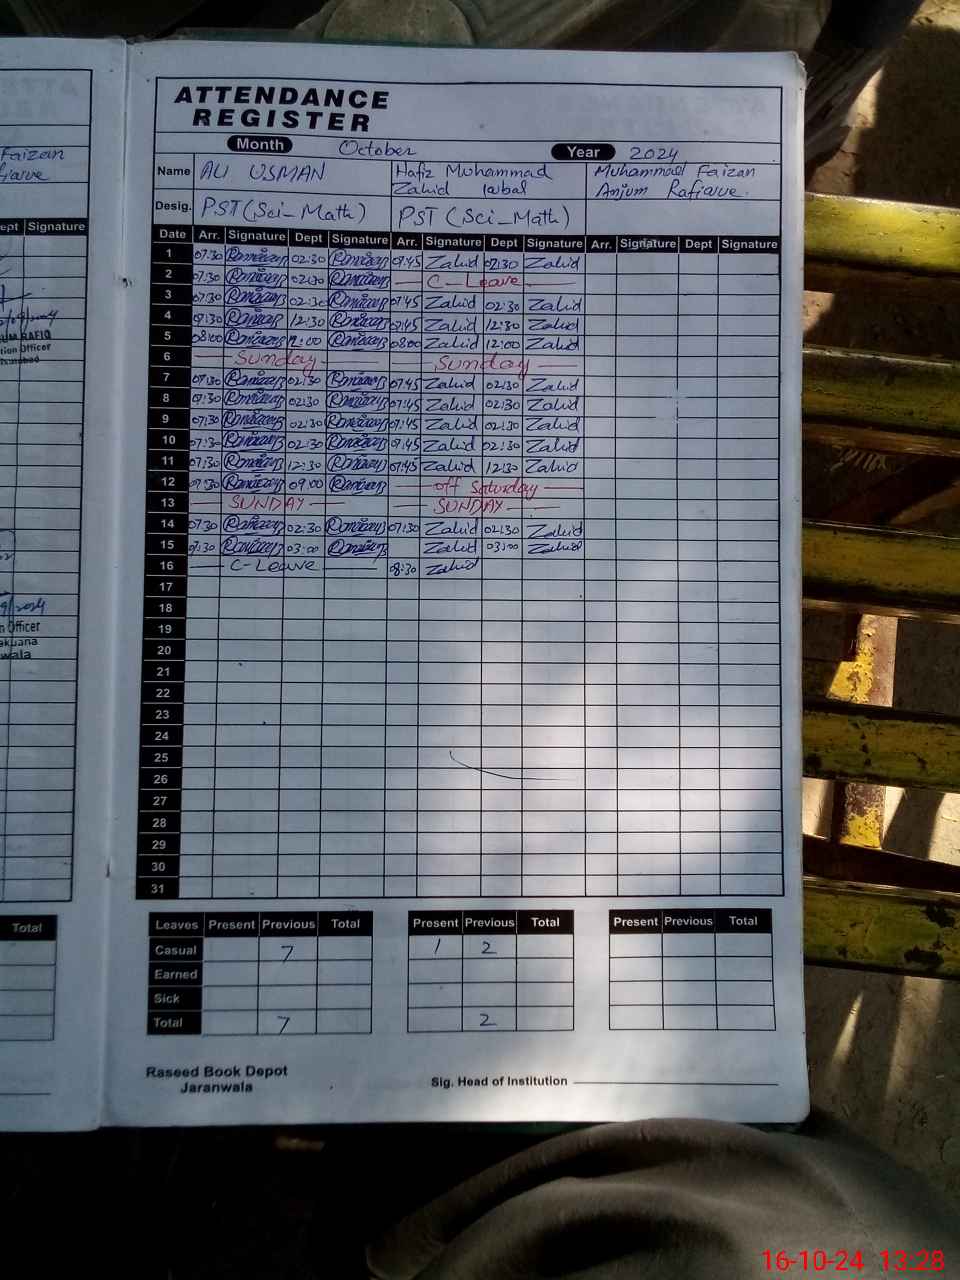 ATTENDANCE
REGISTER
Month October Year 2024
Name ALI USMAN Hafiz Muhammad Zahid Iqbal Muhammad Faizan Anjum Rafique
Desig. PST (Sci_Math) PST (Sci_Math)
Date Arr. Signature Dept Signature Arr. Signature Dept Signature Arr. Signature Dept Signature
1 07:30 02:30 07:45 Zahid 02:30 Zahid
2 07:30 02:30 C-Leave
3 07:30 02:30 07:45 Zahid 02:30 Zahid
4 07:30 12:30 07:45 Zahid 12:30 Zahid
5 08:00 12:00 08:00 Zahid 12:00 Zahid
6 Sunday Sunday
7 07:30 02:30 07:45 Zahid 02:30 Zahid
8 07:30 02:30 07:45 Zahid 02:30 Zahid
9 07:30 02:30 07:45 Zahid 02:30 Zahid
10 07:30 02:30 07:45 Zahid 02:30 Zahid
11 07:30 12:30 07:45 Zahid 12:30 Zahid
12 07:30 09:00 off Saturday
13 SUNDAY SUNDAY
14 07:30 02:30 07:30 Zahid 02:30 Zahid
15 07:30 03:00 Zahid 03:00 Zahid
16 C-Leave 08:30 Zahid
17
18
19
20
21
22
23
24
25
26
27
28
29
30
31
Leaves Present Previous Total Present Previous Total Present Previous Total
Casual 7 1 2
Earned
Sick
Total 7 2
Raseed Book Depot
Jaranwala
Sig. Head of Institution
Faizan
Signature
RAFIQ
Officer
Officer
Total
16-10-24 13:28